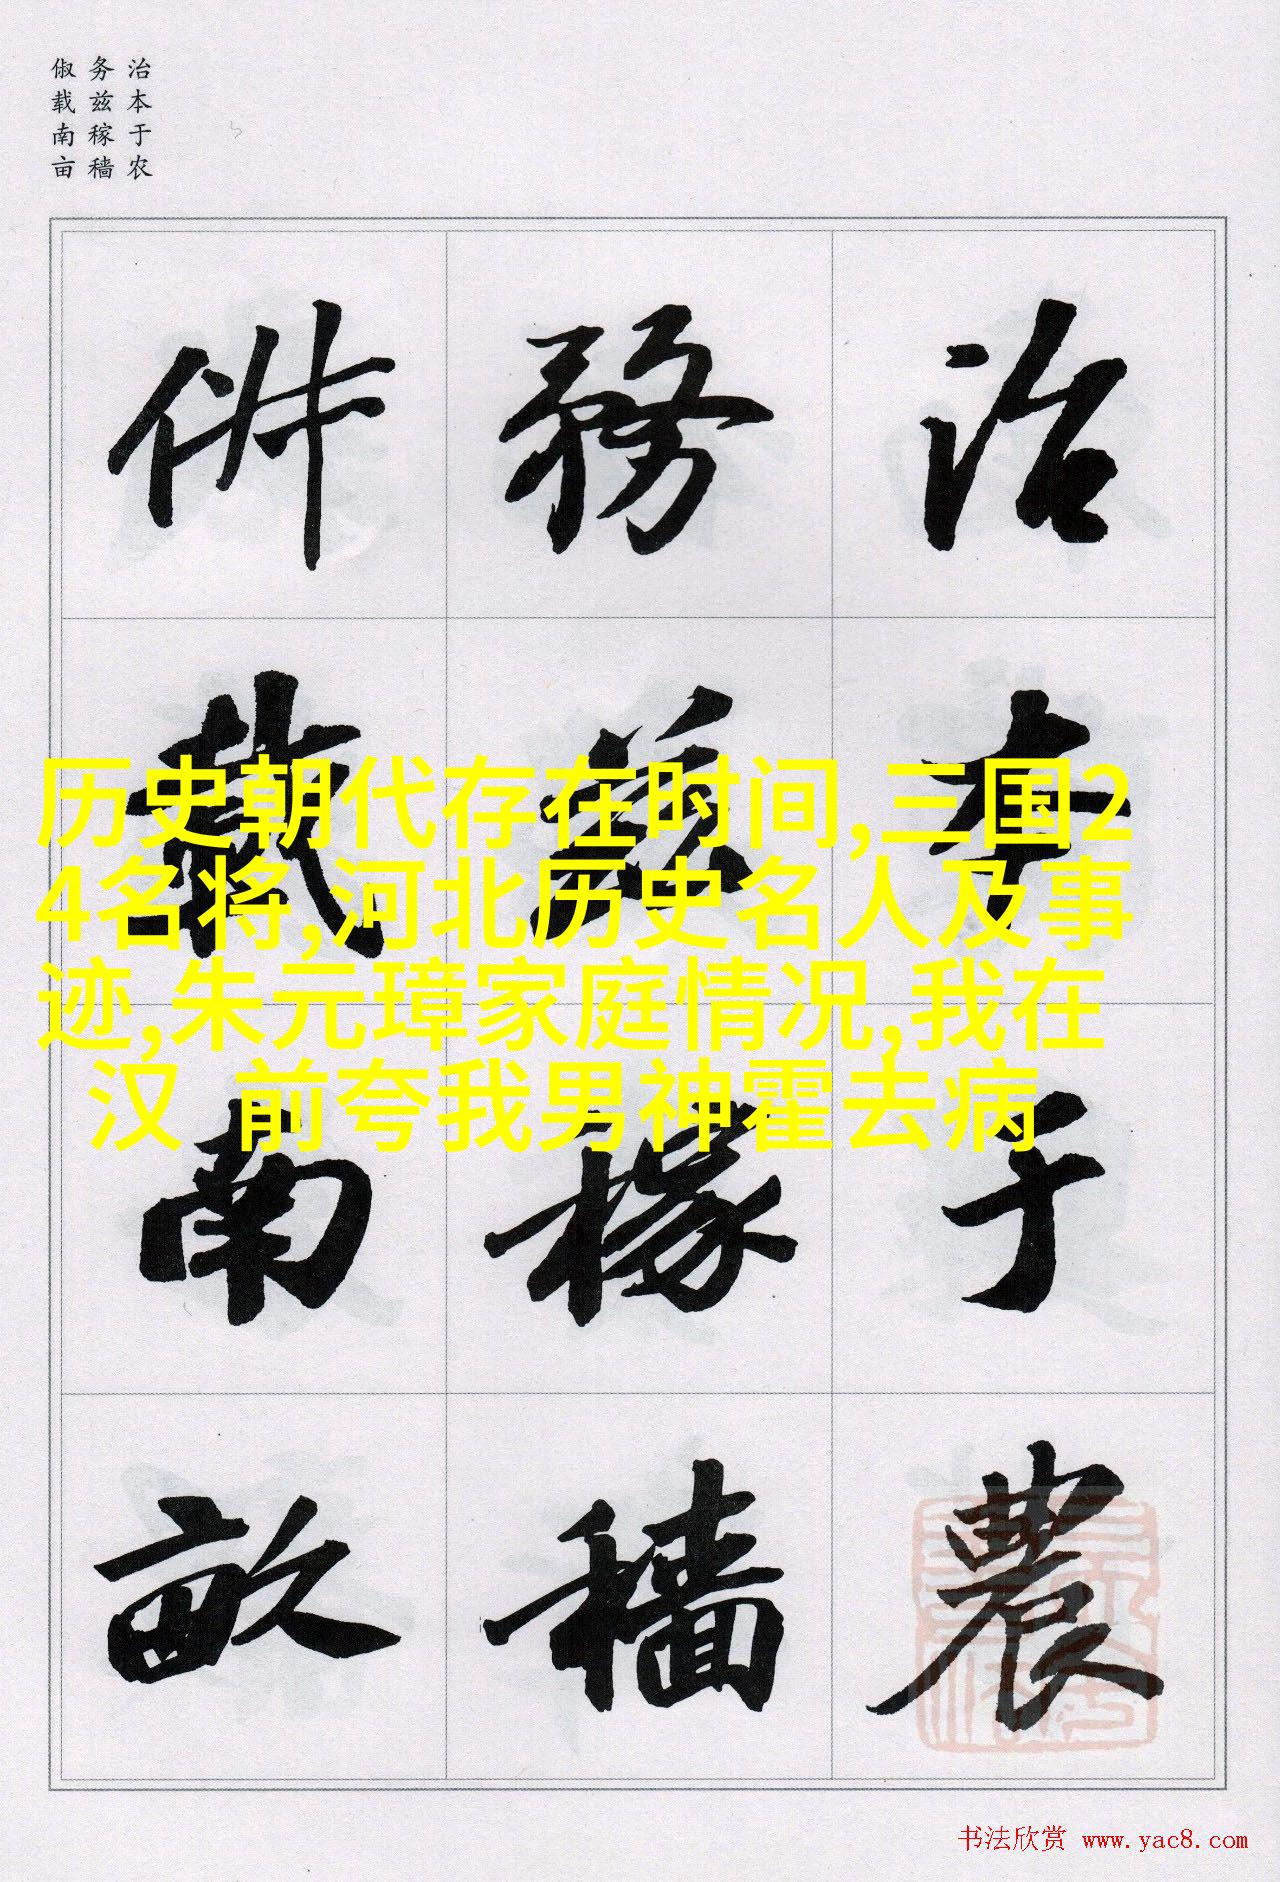 治本于农
务兹稼穑
俶载南亩
治本于農
務茲稼穡
俶載南畝
历史朝代存在时间,三国2
4名将,河北历史名人及事
迹,朱元璋家庭情况,我在
汉 前夸我男神霍去病
书法欣赏 www.yac8.com